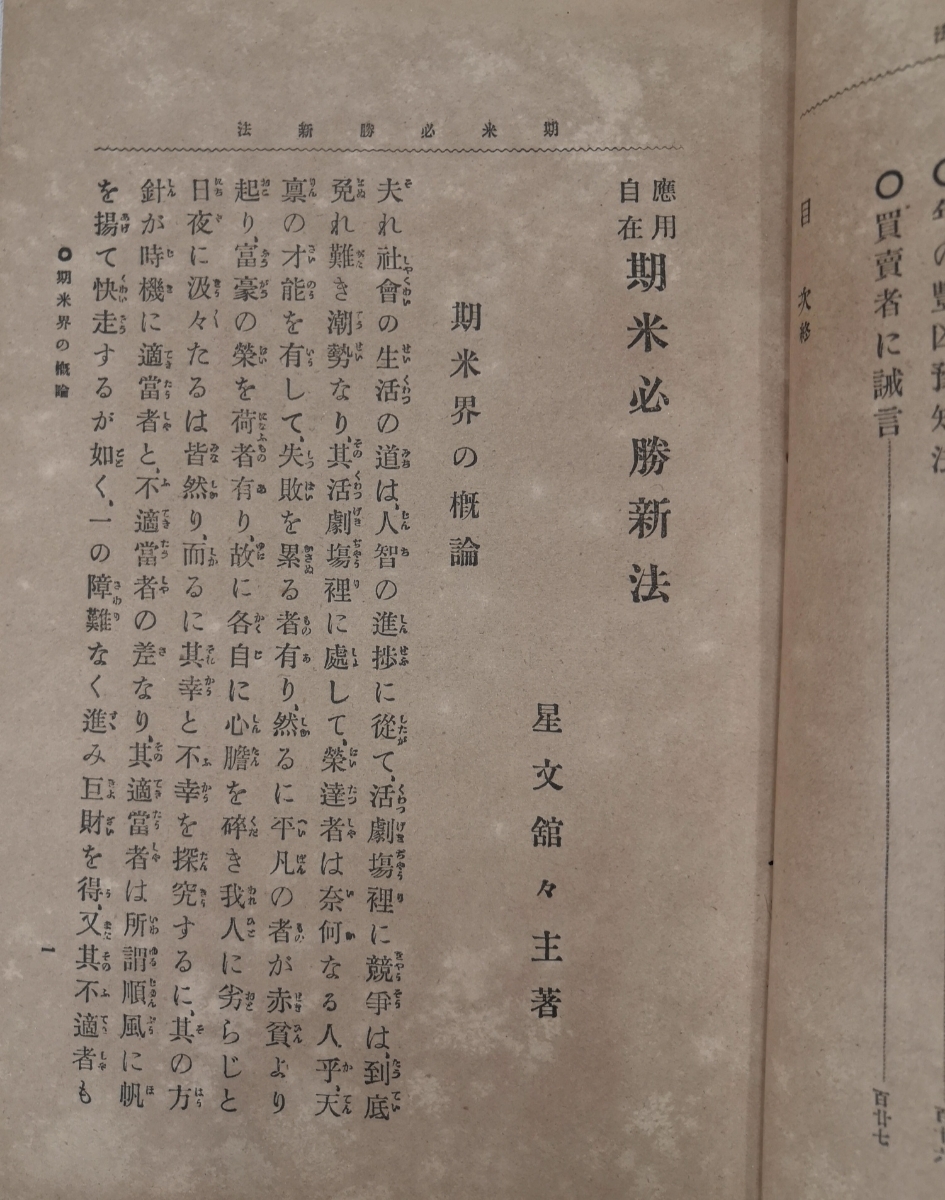 ○買賣者に誡言 百廿七
目次終
期米必勝新法
應用
自在
期米必勝新法
星文舘々主著
期米界の槪論
夫れ社會の生活の道は、人智の進捗に從て、活劇塲裡に競爭は、到底
免れ難き潮勢なり、其活劇塲裡に處して、榮達者は奈何なる人乎、天
禀の才能を有して、失敗を累る者有り、然るに平凡の者が赤貧より
起り、富豪の榮を荷者有り、故に各自に心膽を碎き我人に劣らじと
日夜に汲々たるは皆然り、而るに其幸と不幸を探究するに、其の方
針が時機に適當者と、不適當者の差なり、其適當者は所謂順風に帆
を揚て快走するが如く、一の障難なく進み巨財を得、又其不適者も
○期米界の槪論
一